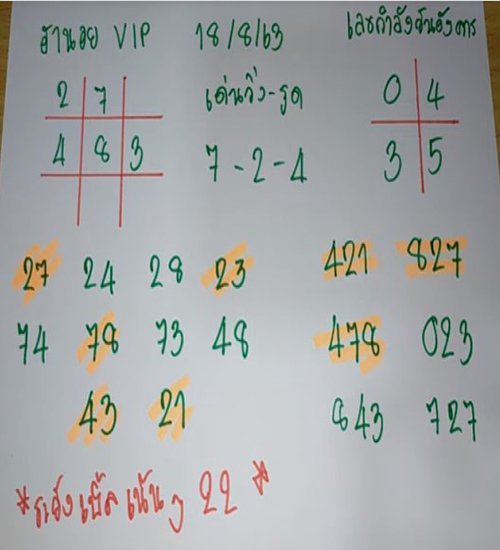 ฮานอย VIP 18/8/63 เลขกำลังวันอังคาร
2 7 เด่นวิ่ง-รูด 0 4
4 8 3 7-2-4 3 5
27 24 28 23 421 827
74 78 73 48 478 023
43 21 843 727
*ระวังเบิ้ลเน้นๆ 22*